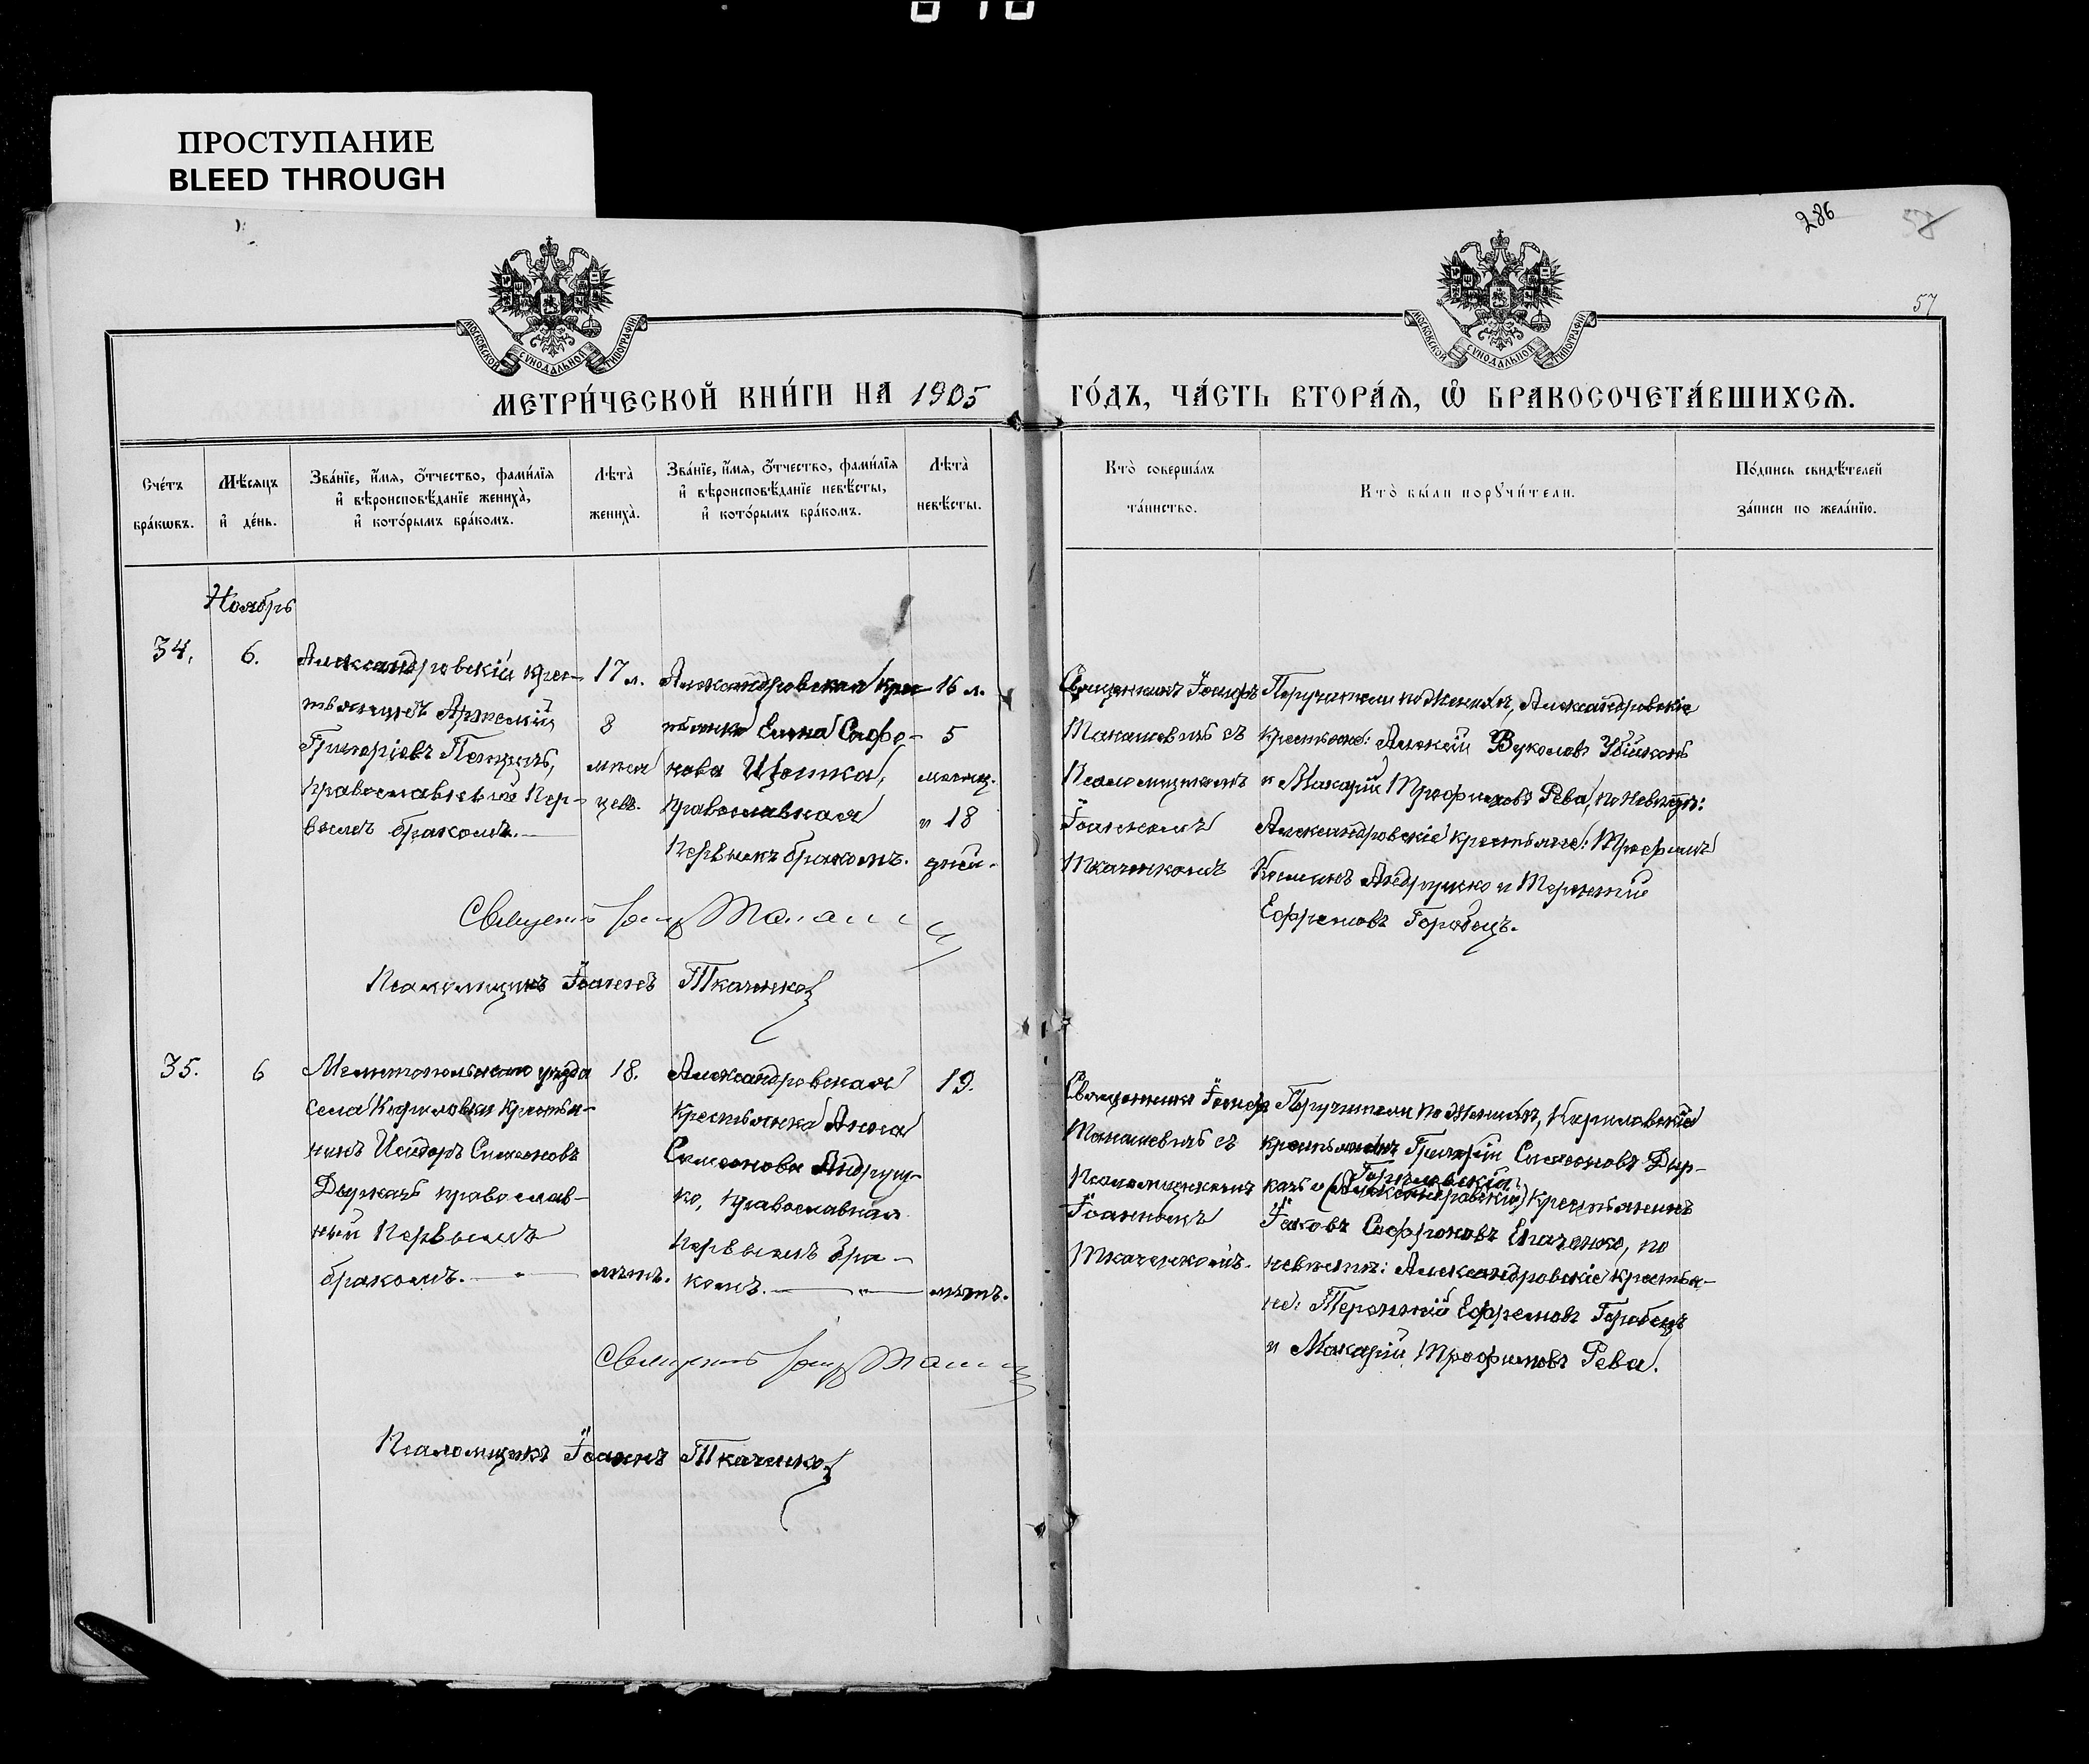 ПРОСТУПАНИЕ
BLEED THROUGH
286
58
57
МОСКОВСКОЙ СѴНОДАЛЬНОЙ ТИПОГРАФІИ
МОСКОВСКОЙ СѴНОДАЛЬНОЙ ТИПОГРАФІИ
МЕТРИ́ЧЕСКОЙ КНИ́ГИ НА 1905
ГО́ДЪ, ЧА́СТЬ ВТОРА́Ѧ, Ѽ БРАКОСОЧЕТА́ВШИХСѦ.
Сче́тъ
бра́кѡвъ.
Мѣ́сяцъ
и҆ де́нь.
Зва́нїе, и҆́мя, ѻ҆́тчество, фами́лїя
и҆ вѣроисповѣ́данїе жениха̀,
и҆ кото́рымъ бра́комъ.
Лѣта̀
жениха̀.
Зва́нїе, и҆́мя, ѻ҆́тчество, фами́лїя
и҆ вѣроисповѣ́данїе невѣ́сты,
и҆ кото́рымъ бра́комъ.
Лѣта̀
невѣ́сты.
Кто̀ соверша́лъ
та́инство.
Кто̀ бы́ли порꙋчи́тели.
По́дпись свидѣ́телей
за́писи по жела́нїю.
Ноябрь
34.
6.
Александровскій крес-
тьянинъ
Григоріевъ
православный Пер-
вымъ бракомъ.
17 л.
8
мѣся
цевъ.
Александровская кре-
стьянка Елена Софо-
нова
Православная
Первымъ бракомъ.
16 л.
5
мѣсяц.
и 18
дней.
Священникъ Іосифъ
Манашевичъ съ
Псаломщикомъ
Іоанномъ
Ткаченкомъ
Поручители по Женихѣ, Александровскіе
Крестьяне: Алексѣй Вуколовъ
и Макарій Трофимовъ Рева, по Невѣстѣ:
Александровскіе крестьяне: Трофимъ
Андрущко и Терентій
Ефремовъ Горобецъ.
Священникъ
Псаломщикъ Іоаннъ Ткаченко
35.
6
Мелитопольскаго уѣзда
села Кириловки Крестья-
нинъ Исидоръ Симеоновъ
Дыркачъ православ-
ный Первымъ
бракомъ.
18.
лѣтъ.
Александровская
Крестьянка Анна
Симеонова Андрущ-
ко, православная
Первымъ бра-
комъ.
19.
лѣтъ.
Священникъ Іосифъ
Манашевичъ съ
Псаломщикомъ
Іоанномъ
Ткаченкомъ.
Поручители по Женихѣ, Кириловскіе
крестьяне Григорій Симеоновъ Дыр-
качъ и (Александровскій) Крестьянинъ
Іаковъ Софроновъ Игнатенко, по
невѣстѣ: Александровскіе крестья-
не: Терентій Ефремовъ Горобецъ
и Макарій Трофимовъ Рева.
Священникъ
Псаломщикъ Іоаннъ Ткаченко